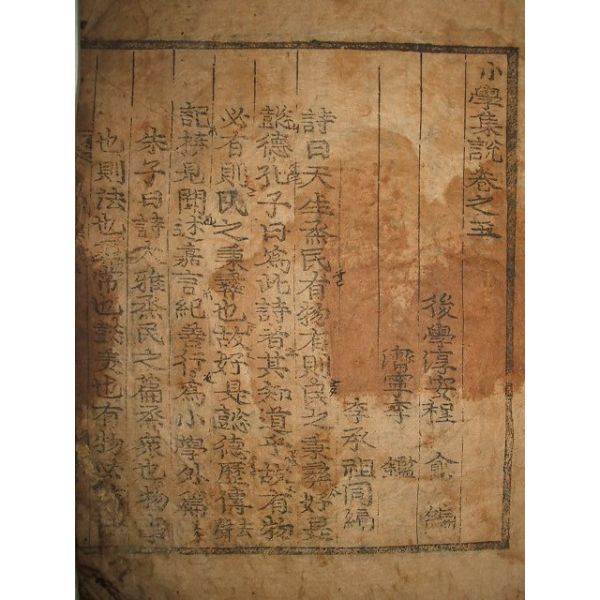 小學集說卷之五
後學淳安程 愈 編
濟寧李 鑑
李承祖同編
詩曰天生烝民有物有則民之秉彝好是
懿德孔子曰爲此詩者其知道乎故有物
必有則民之秉彝也故好是懿德歷傳去聲
記接見聞述嘉言紀善行爲小學外篇
朱子曰詩大雅烝民之篇烝衆也物事
也則法也彝常也懿美也有物必